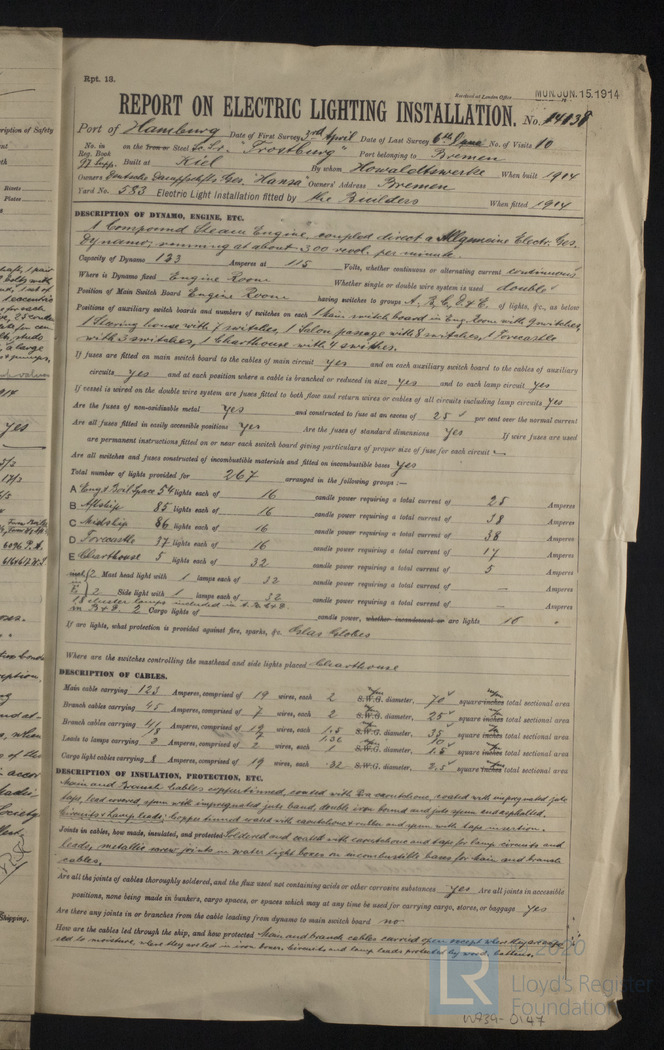 Rpt. 13.
Received at London Office MON. JUN. 15. 1914
REPORT ON ELECTRIC LIGHTING INSTALLATION. No.
Port of Hamburg Date of First Survey 3rd April Date of Last Survey 6th June No. of Visits 10
No. in Reg. Book on the Iron or Steel "Trostburg" Port belonging to Bremen
Built at Kiel By whom Howaldtswerke When built 1914
Owners Deutsche Dampfschiffs Ges. "Hansa" Owners' Address Bremen
Yard No. 583 Electric Light Installation fitted by the Builders When fitted 1914
DESCRIPTION OF DYNAMO, ENGINE, ETC.
1 Compound Steam Engine, coupled direct a Allgemeine Electr. Ges.
Dynamo, running at about 300 revol. per minute.
Capacity of Dynamo 133 Amperes at 115 Volts, whether continuous or alternating current continuous
Where is Dynamo fixed Engine Room Whether single or double wire system is used double
Position of Main Switch Board Engine Room having switches to groups A. B. C. D & E. of lights, &c., as below
Positions of auxiliary switch boards and numbers of switches on each 1 Main switch board in Eng. Room with 9 switches,
1 Steering house with 7 switches, 1 Salon passage with 8 switches, 1 Forecastle
with 3 switches, 1 Charthouse with 4 switches.
If fuses are fitted on main switch board to the cables of main circuit yes and on each auxiliary switch board to the cables of auxiliary
circuits yes and at each position where a cable is branched or reduced in size yes and to each lamp circuit yes
If vessel is wired on the double wire system are fuses fitted to both flow and return wires or cables of all circuits including lamp circuits yes
Are the fuses of non-oxidizable metal yes and constructed to fuse at an excess of 25 per cent over the normal current
Are all fuses fitted in easily accessible positions yes Are the fuses of standard dimensions yes If wire fuses are used
are permanent instructions fitted on or near each switch board giving particulars of proper size of fuse for each circuit —
Are all switches and fuses constructed of incombustible materials and fitted on incombustible bases yes
Total number of lights provided for 267 arranged in the following groups :—
A Eng & Boil Space 54 lights each of 16 candle power requiring a total current of 25 Amperes
B Aftship 85 lights each of 16 candle power requiring a total current of 38 Amperes
C Midship 86 lights each of 16 candle power requiring a total current of 38 Amperes
D Forecastle 37 lights each of 16 candle power requiring a total current of 17 Amperes
E Charthouse 5 lights each of 32 candle power requiring a total current of 5 Amperes
2 Mast head light with 1 lamps each of 32 candle power requiring a total current of — Amperes
2 Side light with 1 lamps each of 32 candle power requiring a total current of — Amperes
18 cluster lamps included in A. B. C & D
2 Cargo lights of candle power, whether incandescent or arc lights 16 "
If arc lights, what protection is provided against fire, sparks, &c. Glas Globes
Where are the switches controlling the masthead and side lights placed Charthouse
DESCRIPTION OF CABLES.
Main cable carrying 123 Amperes, comprised of 19 wires, each 2 S.W.G. diameter, 70 square inches total sectional area
Branch cables carrying 45 Amperes, comprised of 7 wires, each 2 S.W.G. diameter, 25 square inches total sectional area
Branch cables carrying Amperes, comprised of 19 wires, each 1.5 S.W.G. diameter, 35 square inches total sectional area
Leads to lamps carrying 2 Amperes, comprised of 2 wires, each 1 S.W.G. diameter, 1.5 square inches total sectional area
Cargo light cables carrying 8 Amperes, comprised of 19 wires, each .32 S.W.G. diameter, 2.5 square inches total sectional area
DESCRIPTION OF INSULATION, PROTECTION, ETC.
Main and Branch Cables copper tinned, coated with caoutchouc, coated with impregnated jute
tape, lead covered, spun with impregnated jute band, double iron bound and jute spun and asphalted.
Circuits & lamp leads: Copper tinned coated with caoutchouc & rubber and spun with tape insertion.
Joints in cables, how made, insulated, and protected Soldered and coated with caoutchouc and tape for lamp circuits and
leads, metallic screw joints in water tight boxes on incombustible base for main and branch
cables.
Are all the joints of cables thoroughly soldered, and the flux used not containing acids or other corrosive substances yes Are all joints in accessible
positions, none being made in bunkers, cargo spaces, or spaces which may at any time be used for carrying cargo, stores, or baggage yes
Are there any joints in or branches from the cable leading from dynamo to main switch board no
How are the cables led through the ship, and how protected Main and branch cables carried open except where they are expo-
sed to moisture, where they are led in iron boxes, circuits and lamp leads protected by wood battens.
© 2020
LR Lloyd's Register
Foundation
W739-0147